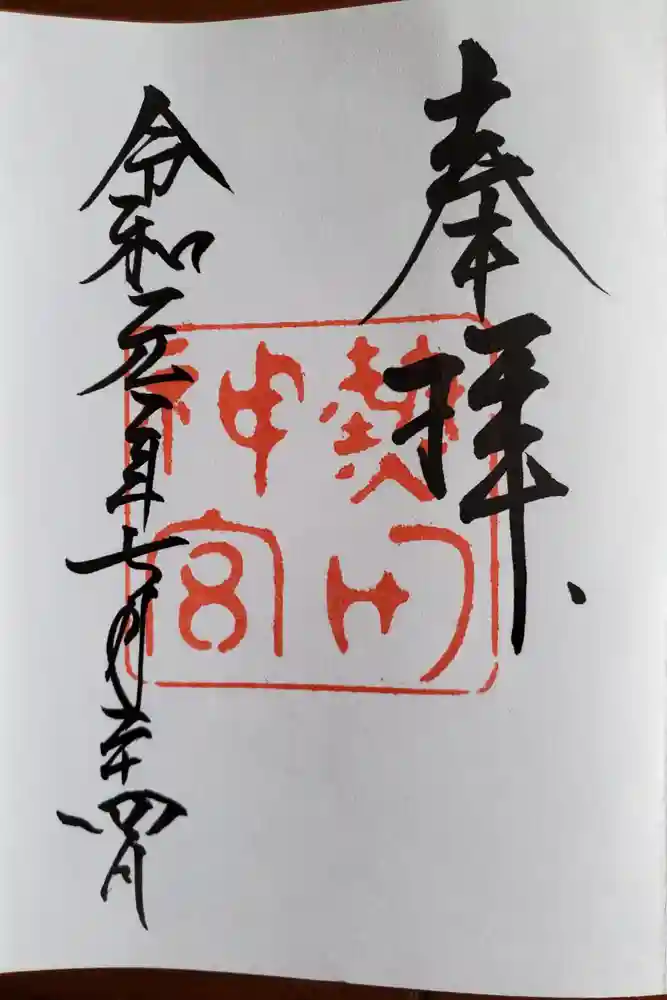 奉拝
熱田
神宮
令和元年七月二十四日